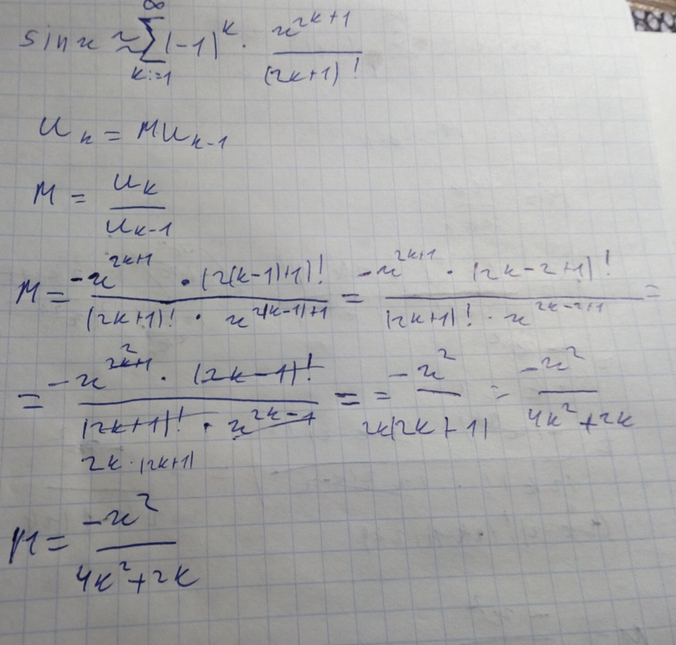 sin x ≈ ∑_{k=1}^{∞} (-1)^k · x^{2k+1} / (2k+1)!
U_k = M U_{k-1}
M = U_k / U_{k-1}
M = -x^{2k+1} · (2(k-1)+1)! / (2k+1)! · x^{2(k-1)+1} = -x^{2k+1} · (2k-2+1)! / (2k+1)! · x^{2k-2+1} =
= -x^{2k+1} · (2k-1)! / (2k+1)! · x^{2k-1} = = -x^2 / 2k(2k+1) = -x^2 / 4k^2+2k
2
2k · (2k+1)
M = -x^2 / 4k^2+2k